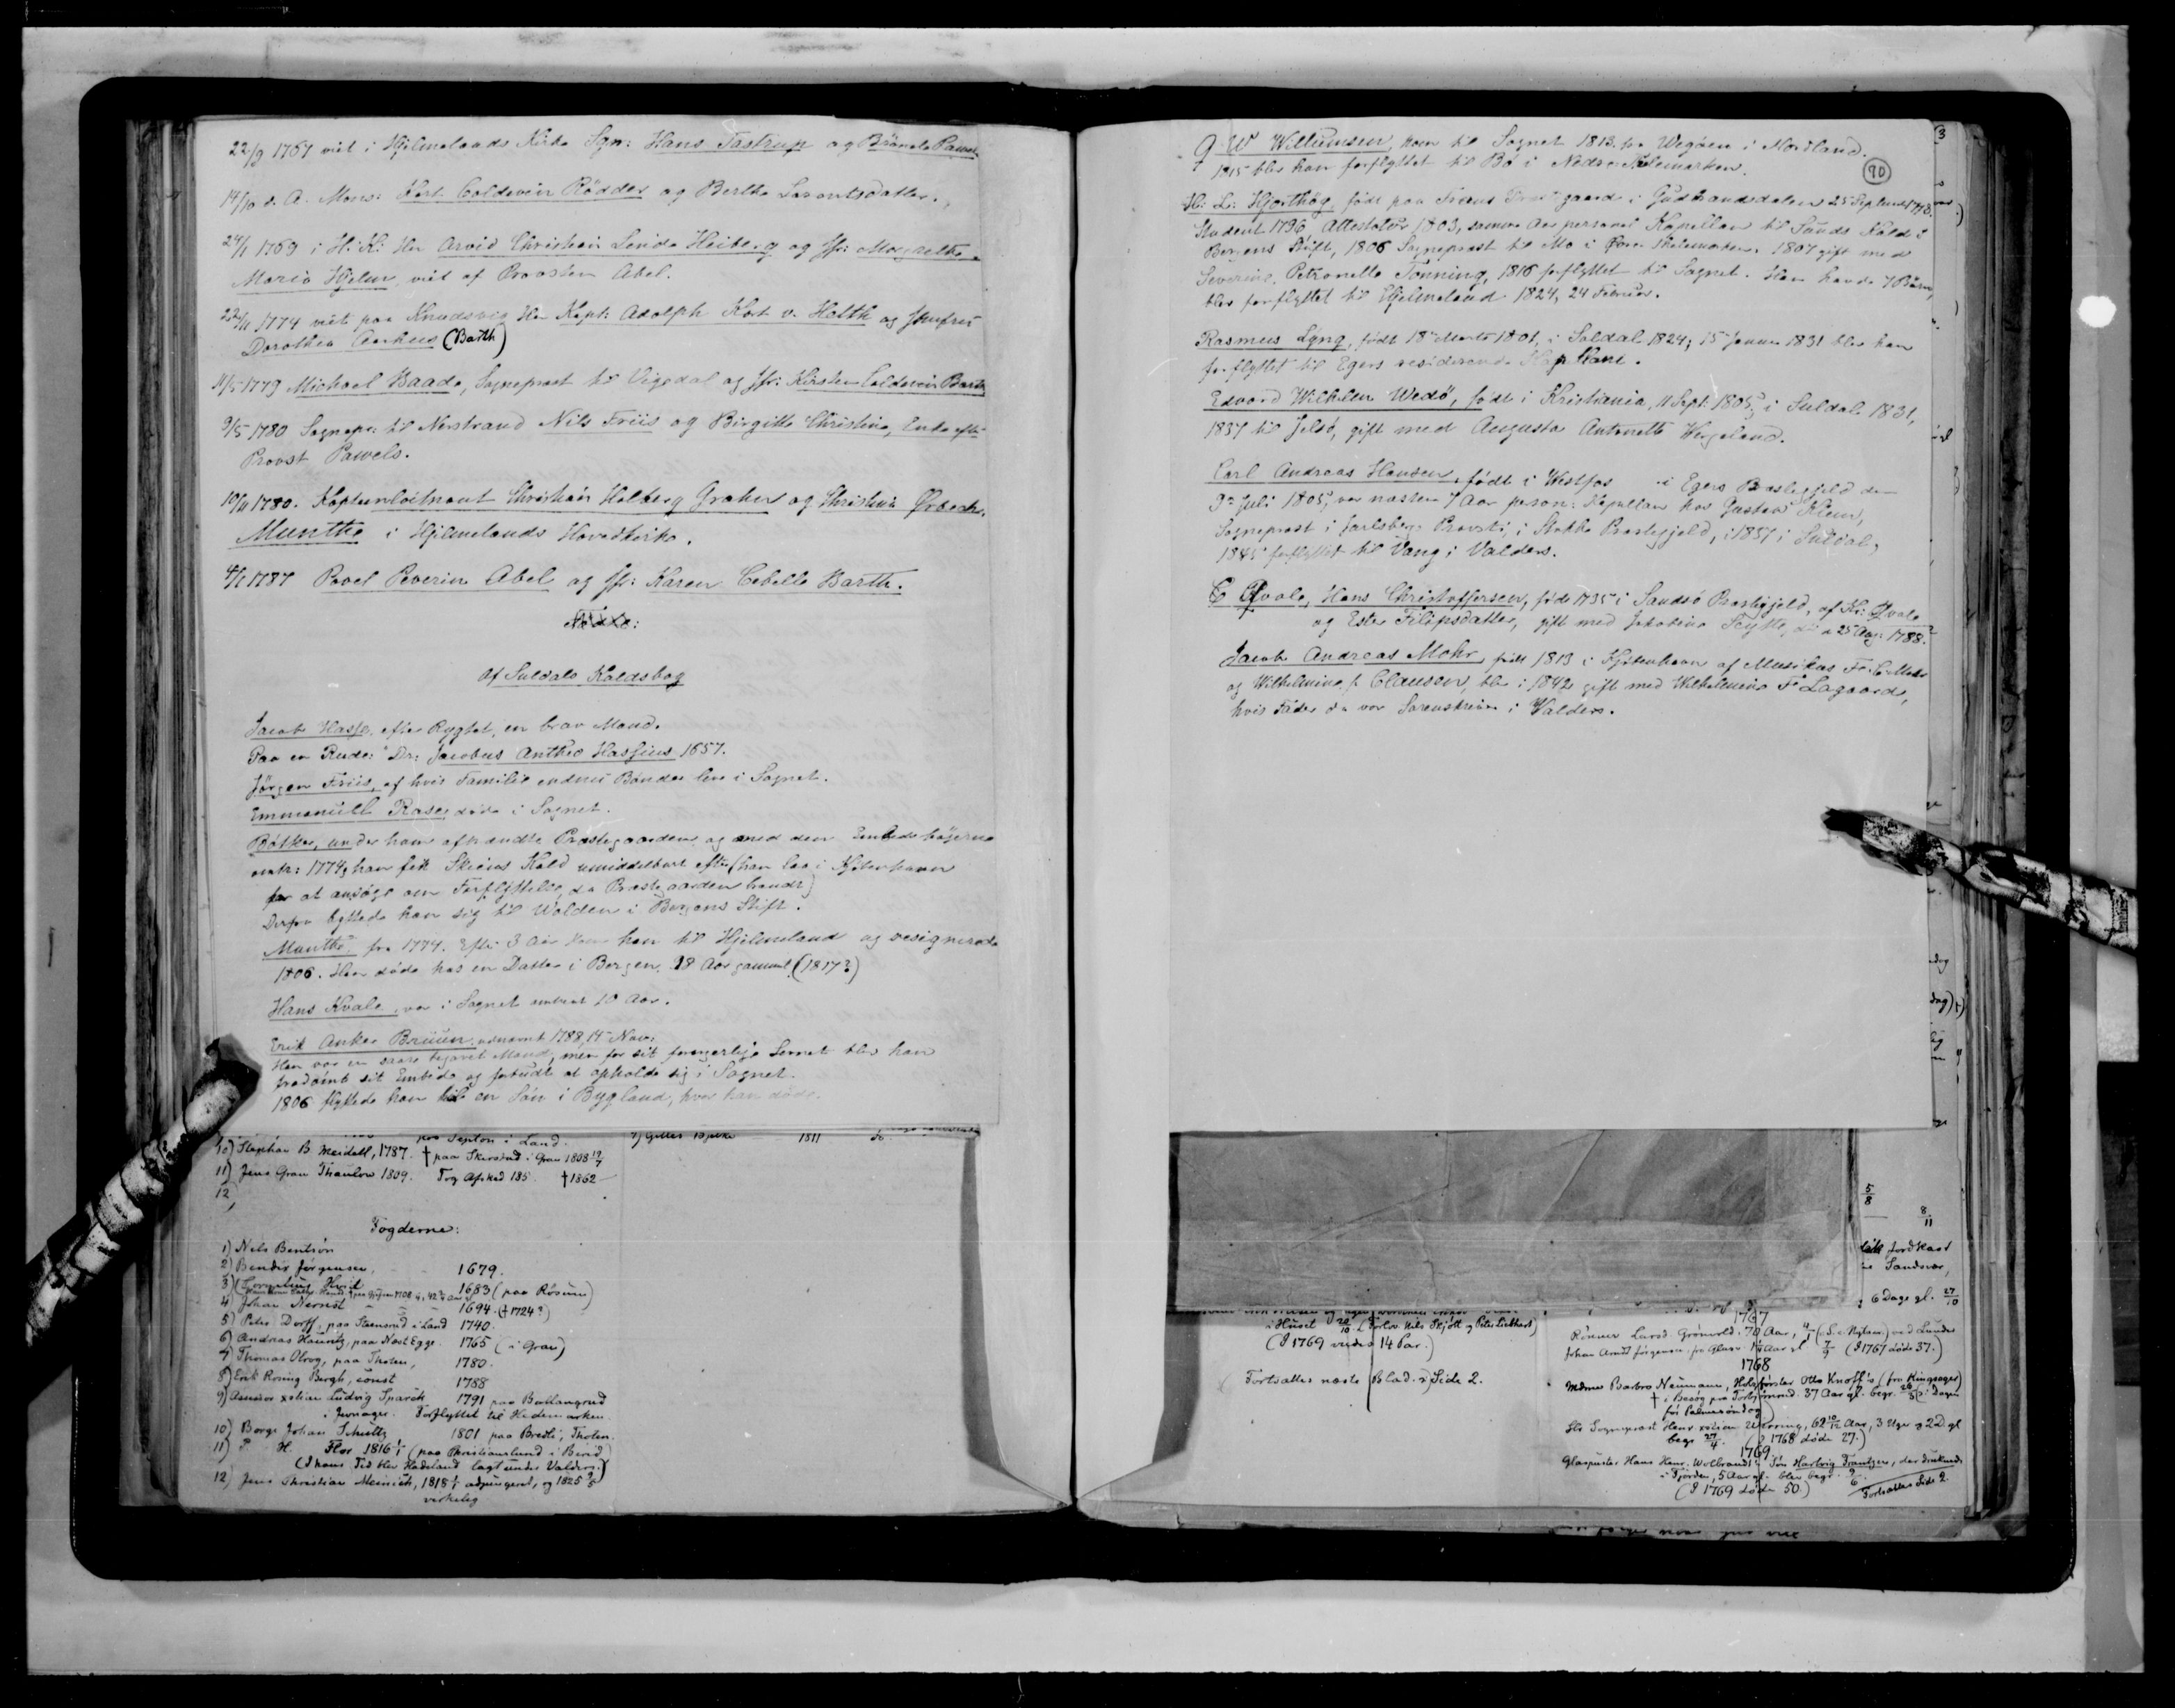 22/9 1767 viet i Hjelmelands Kirke Sgn: Hans Tastrup og
14/10 d. A. Mons: Kort Coldevin Rödder og Berthe Larentsdatter.
24/1 1769 i H: K: Hr Arvid Christian Linde Heiberg og Jfr: Margrethe
Maria Hjelm, viet af Provsten Abel.
22/11 1774 viet paa Knudsvig Hr Kapt: Adolph Kort v. Holth og Jomfru
Dorothea Aarhus (Barth)
11/5 1779 Michael Baade, Sogneprest til Vigedal og Jfr: Kirsten Coldevin Barth
9/5 1780 Sognepr: til Nerstrand Nils Friis og Birgitte Christine, Enke efter
Provst Pawels.
10/11 1780. Kapteinloitnant Christian Holberg Graher og Christine Ørbech
Munthe i Hjelmelands Hovedkirke.
4/1 1787 Povel Peverin Abel og Jfr: Karen Cebille Barth.
af Suldals Kaldsbog
Jacob Hasse, efter Rygtet, en brav Mand.
Paa en Rude: "Dr: Jacobus Hassius 1657.
Jörgen Friis, af hvis Familie endnu Bönder leve i Sognet.
Emmanuell Rase, döde i Sognet.
Bötker, under ham afbrændte Præstegaarden og med den Embedsbögerne
omkr: 1774; han fik Kald umiddelbart efter (han laa i Kjöbenhavn
for at ansöge om Forflyttelse, da Præstegaarden brændt)
Derfra byttede han sig til Volden i Bergens Stift.
Munthe fra 1774. Efter 3 Aar kom han til Hjelmeland og resignerede
1806. Han döde hos en Datter i Bergen, 98 Aar gammel. (1817?)
Hans Kvale, var i Sognet omtrent 10 Aar.
Erik Anker Brüün, udnævnt 1788, 14 Nov:
Han var en saare begavet Mand, men for sit forargerlige Levnet blev han
fradömt sit Embede og forbudt at opholde sig i Sognet.
1806 flyttede han til en Sön i Bygland, hvor han döde.
paa Septon i Land.
7) Gilles 1811 do
10) Stephan B. Meidell, 1787. † paa Skirstad i Gran 1808 19/7
11) Jens Gran Thaulow 1809. Tog Afsked 185 † 1862
12,
Fogderne:
1) Nels Bentsön
2) Bendix Jörgensen, 1679.
3) Cornelius Hvid 1683 (paa Röisum)
4) Johan Nernst 1694. († 1724?)
5) Peter Dorff, paa Steensrud i Land 1740.
6) Andreas Hauntz, paa Næst Egge. 1765 (i Gran)
7) Thomas Olrog, paa Thoten, 1780.
8) Erik Rosing Bergh, const 1788
9) Assessor xstian Ludvig Sparck 1791 paa Ballangrud
i Jevnager. Forflyttet til Hedemarken.
10) Borge Johan Schultz 1801 paa Bredli, Thoten.
11) P. H. Flor 1816 1/1 (paa Christianslund i Birid)
(I hans Tid blev Hadeland lagt under Valders.)
12) Jens Christian Meinich, 1818 1/1 adjungeret, og 1825 9/5
virkelig
G. W. Willumsen, kom til Sognet 1813 fra Wegöen i Nordland.
1815 blev han forflyttet til Bö i Nedre Thelemarken.
90
H: L: Hjorthög, född paa Præstegaard i Gudbrandsdalen 25 September 1773.
Student 1796 Attestatus 1803, samme Aar personel Kapellan til Sunds Kald i
Bergens Stift, 1806 Sogneprest til Mo i Övre Thelemarken. 1807 gift med
Severine Petronelle Tönning, 1816 forflyttet til Sognet. Han havde 7 Börn,
blev forflyttet til Hjelmeland 1824, 24 Februar.
Rasmus Lyng, född 18de Marts 1801, i Suldal 1824; 15 Januar 1831 blev han
forflyttet til Egers residerende Kapellani.
Edvard Wilhelm Wedö, född i Kristiania, 11 Sept: 1805; i Suldal 1831,
1837 til Jelsö, gift med Augusta Antonette Wergeland.
Carl Andreas Hansen, född i Westfos i Egers Præstegjeld den
9de Juli 1805; var næsten 7 Aar person: Kapellan hos Gustav Klem,
Sogneprest i Jarlsberg: Provsti, i Stokke Præstegjeld, i 1837 i Suldal,
1845 forflyttet til Vang i Valders.
Qvale, Hans Christoffersen, född 1735 i Sandsö Præstegjeld, af Kr: Qvale
og Ester Filipsdatter, gift med Jakobine Scytte, död 25 Aug: 1788.?
Jacob Andreas Mohr, född 1813 i Kjöbenhavn af Musikus Fr: C. Mohr
og Wilhelmine f. Clausen, blev i 1842 gift med Wilhelmine F. Lagaard,
hvis Fader da var Sorenskriver i Valders.
i Huset 20/10. (Forlov. Nils Skjött og Peter Liebhart)
(I 1769 viedes 14 Par.)
Fortsættes næste Blad. 2) Side 2.
1767
Rönner Larsd. Grönvold. 70 Aar, 4/1 ved Lunder
Johan Arndt Jörgensen fra Glasv. 1 1/4 Aar gl 7/9 (I 1767 döde 37.)
1768
Mdme Barbro Neumann, Holzförster Otto Knoff's (fra Kingsager)
† i Besög paa Torbjörnrud. 37 Aar gl. begr. 26/3 i: Dagen
för Palmesöndag
Hr. Sogneprest Henr xstian Wörring, 62 10/12 Aar, 3 Uger og 2 D. gl
begr 27/4. (I 1768 döde 27.)
1769.
Glaspuster Hans Henr. Wolbrandt's Sön Hartvig Frantzen, der druknede
i Fjorden, 5 Aar gl. blev begr. 9/6.
(I 1769 döde 50.)
Fortsættes Side 2.
5/8
8/11
jordkast
Sandsvær,
6 Dage gl. 27/10